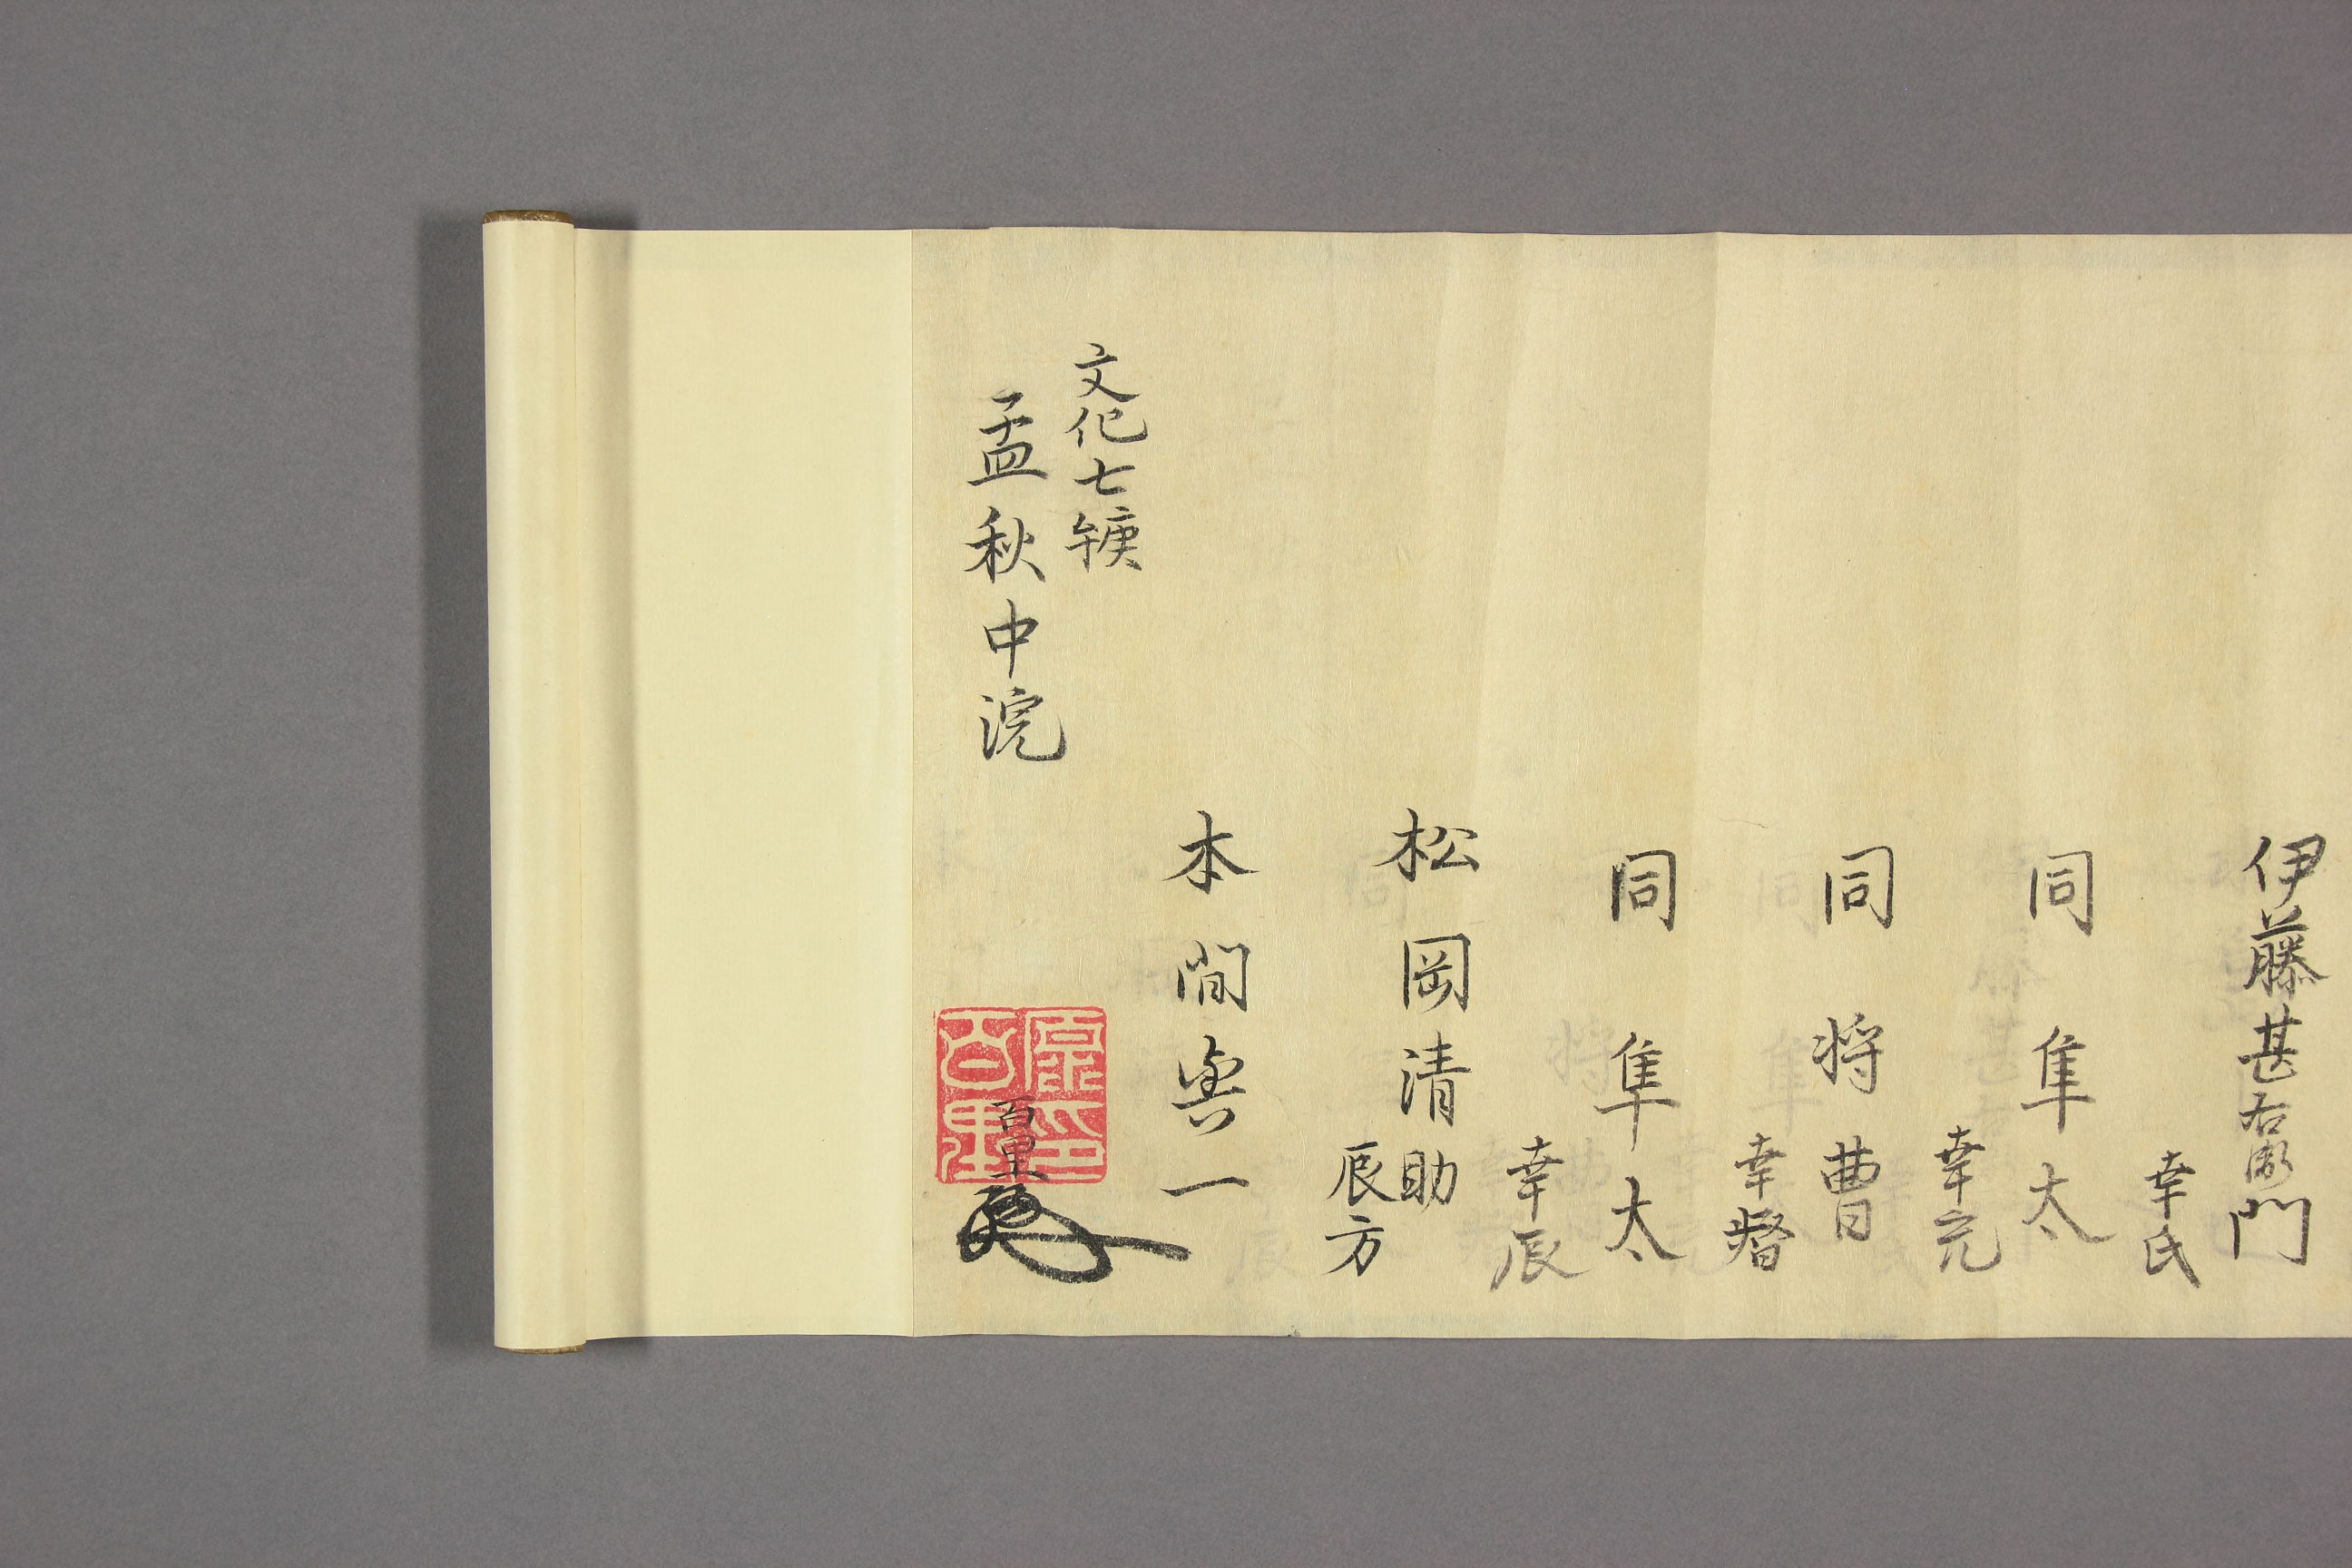 伊藤甚右衛門
幸氏
同隼太
幸元
同将曹
幸督
同隼太
幸辰
松岡清助
辰方
本間與一
百里
文化七庚午
孟秋中浣